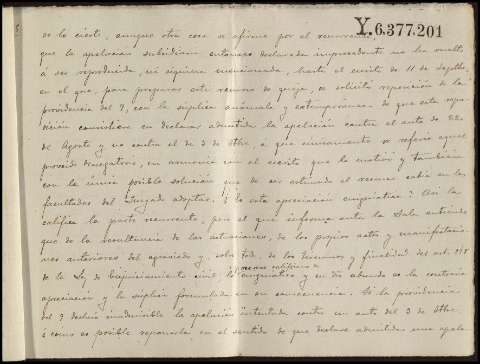 Y.6.377.201
de lo cierto, aunque otra cosa se afirme por el recurrente,
que la apelación subsidiaria entonces declarada improcedente no ha vuelto
á ser reproducida, ni siquiera mencionada, hasta el escrito de 11 de Sepbre
en el que, para preparar este recurso de queja, se solicitó reposición de la
providencia del 7, con la súplica anómala y extemporánea de que esta repo-
sición consistiera en declarar admitida la apelación contra el auto de
de Agosto y no contra el de 3 de Stbre, á que únicamente se refería aquel
proveído denegatorio, en armonía con el escrito que lo motivó y también
con la única posible solución que de ser estimado el recurso cabía en las
facultades del Juzgado adoptar. ¿Es esta apreciación inquisitiva? Así la
califica la parte recurrente, pero el que informa ante la Sala entiende
que de la resultancia de las actuaciones, de los propios actos y manifestacio-
nes anteriores del agraviado y, sobre todo, de los términos y finalidad del art. 398
de la Ley de Enjuiciamiento civil lo enigmático y sin duda es la contraria
apreciación y la súplica formulada en su consecuencia. Si la providencia
del 7 declaró inadmisible la apelación intentada contra un auto del 3 de Stbre
¿cómo es posible reponerla en el sentido de que declare admitida una apela-